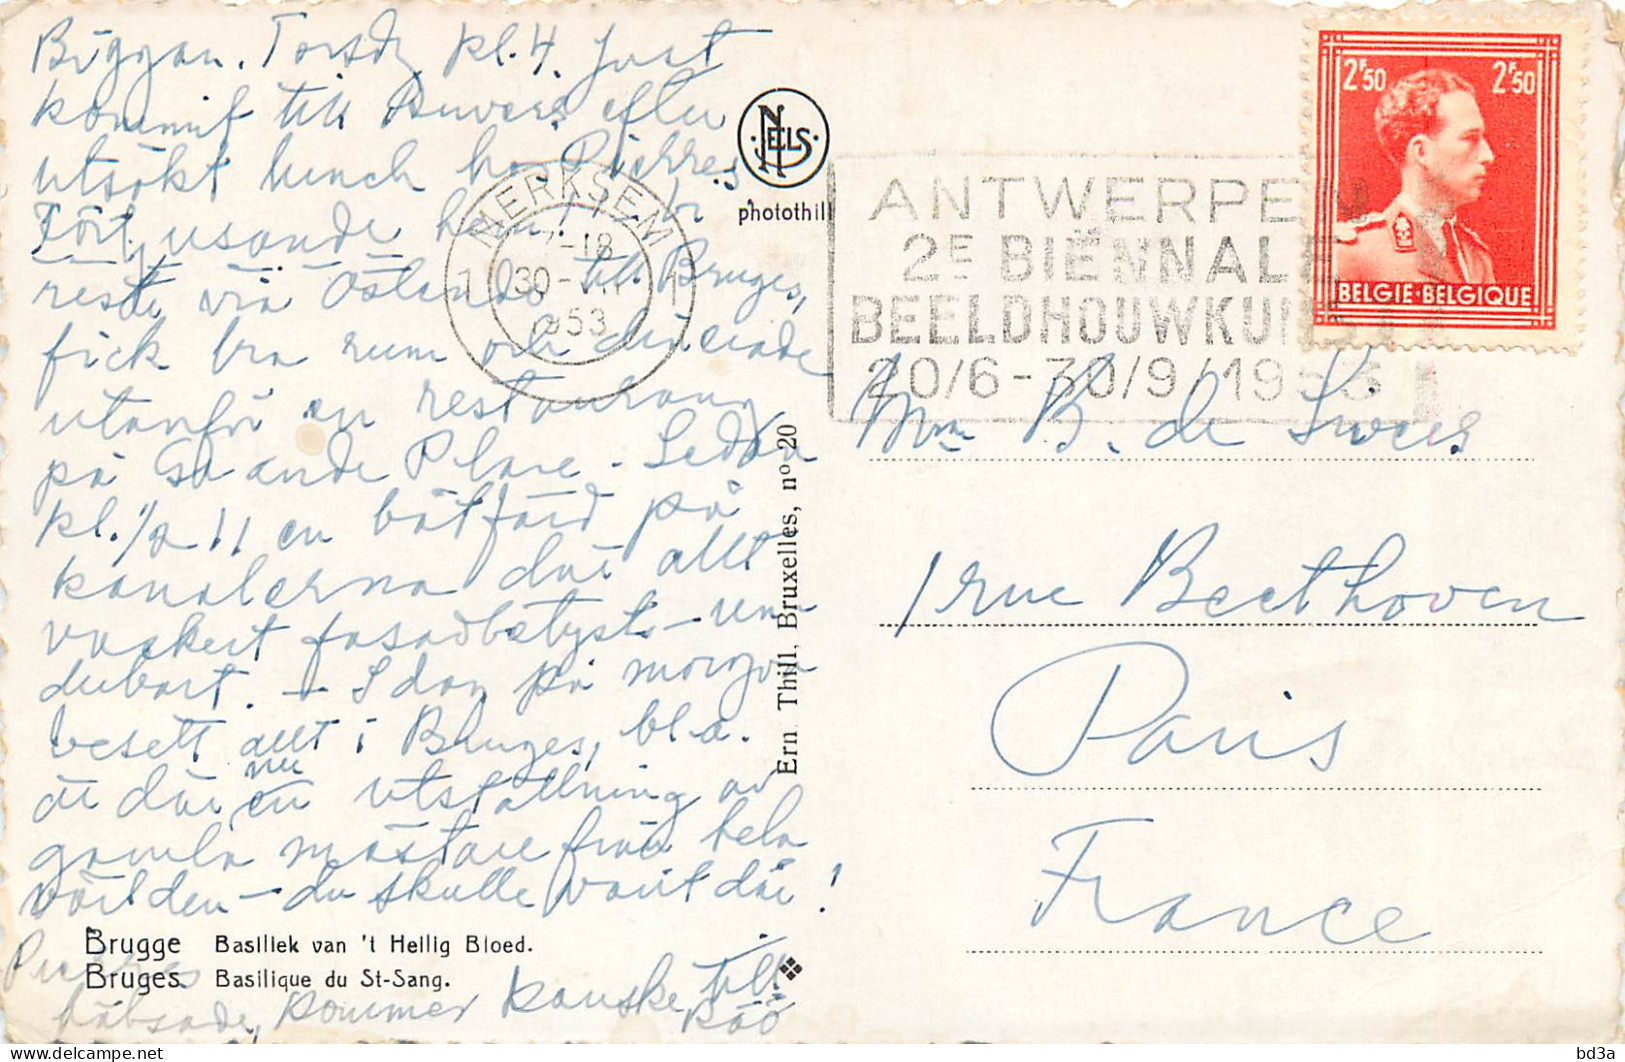 Brüggan. Torsd. kl. 4. Just
kommit till Anvers efter
utsökt lunch hos Pierres
förtjusande hem! Vi
reste via Ostende till Bruges,
fick bra rum och dinerade
utanför en restaurang
på Grande Place - Sedan
kl. 1/2 11 en båtfärd på
kanalerna där allt
vackert fasadbelyst - un-
derbart. - Idag på morgon
besett allt i Bruges, bl.a.
är där nu en utställning av
gamla mästare från hela
världen - du skulle varit där!
Pierres
hälsade, kommer kanske till
Råö
NELS
photothill
MERKSEM
1 1
-18
30-VII
1953
ANTWERPEN
2E BIËNNALE
BEELDHOUWKUNST
20/6-30/9/1953
2F50 2F50
BELGIE·BELGIQUE
Ern. Thill, Bruxelles, nº 20
Mme B. de
1 rue Beethoven
Paris
France
Brugge Basiliek van 't Heilig Bloed.
Bruges. Basilique du St-Sang.
bd3a